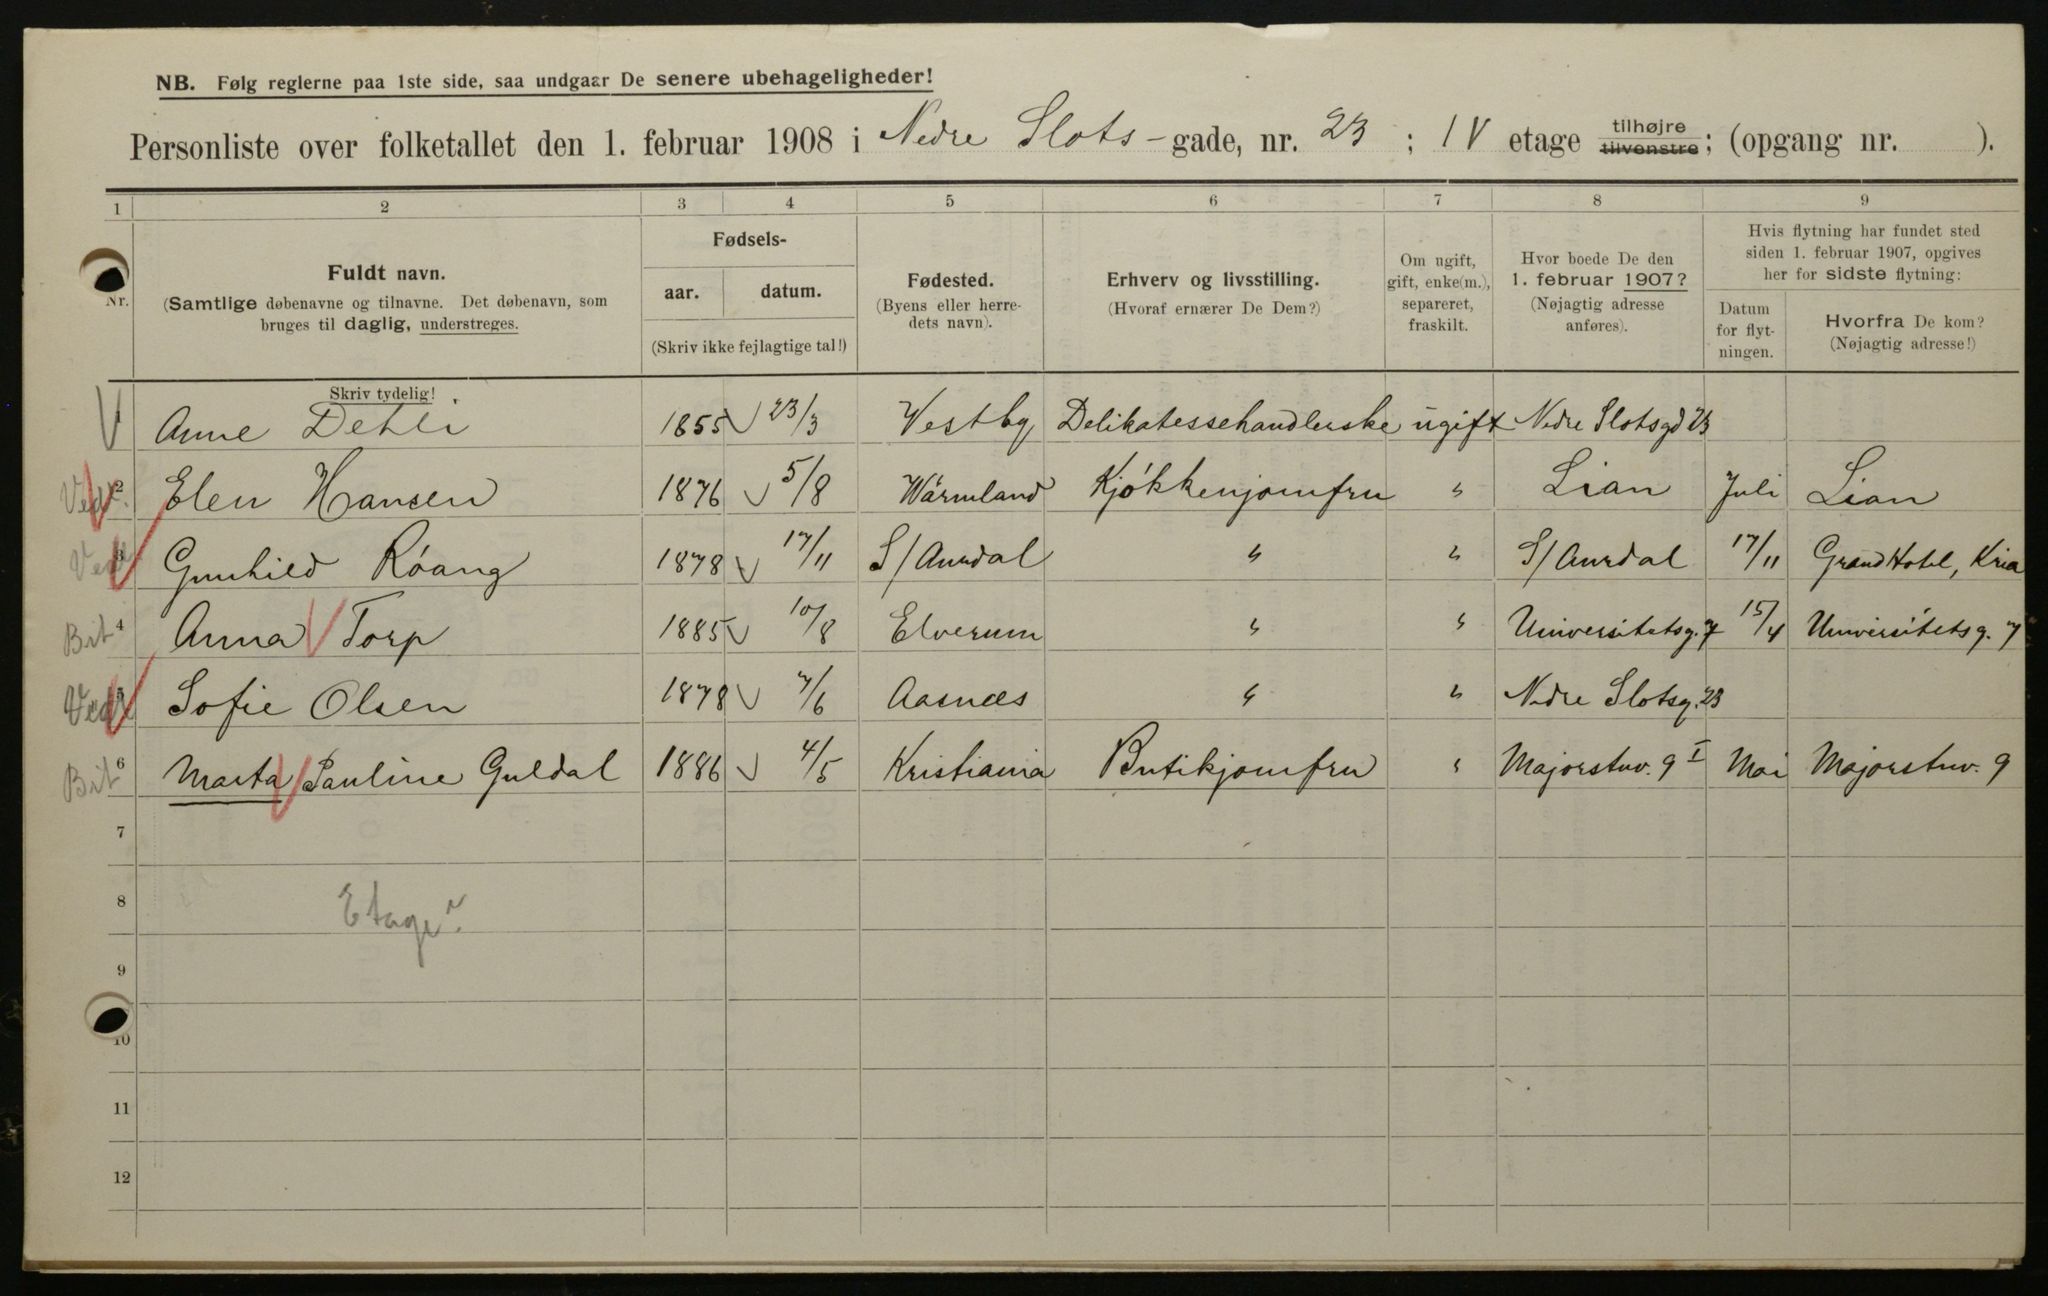 NB. Følg reglerne paa 1ste side, saa undgaar De senere ubehageligheder!
Personliste over folketallet den 1. februar 1908 i Nedre Slots-gade, nr. 23; IV etage tilhøjre tilvenstre; (opgang nr. ).
1 2 3 4 5 6 7 8 9
Nr.
Fuldt navn.
(Samtlige døbenavne og tilnavne. Det døbenavn, som
bruges til daglig, understreges.
Fødsels-
aar. datum.
(Skriv ikke fejlagtige tal!)
Fødested.
(Byens eller herre-
dets navn).
Erhverv og livsstilling.
(Hvoraf ernærer De Dem?)
Om ugift,
gift, enke(m.),
separeret,
fraskilt.
Hvor boede De den
1. februar 1907?
(Nøjagtig adresse
anføres).
Hvis flytning har fundet sted
siden 1. februar 1907, opgives
her for sidste flytning:
Datum
for flyt-
ningen.
Hvorfra De kom?
(Nøjagtig adresse!)
Skriv tydelig!
1 Anne Dehli 1855 23/3 Vestby Delikatessehandlerske ugift Nedre Slotsgd 23
Vedr. 2 Elen Hansen 1876 5/8 Wärmland Kjøkkenjomfru " Lian Juli Lian
3 Gunhild Róang 1878 17/11 S/Aurdal " " S/Aurdal 17/11 Grand Hotel, Kria
Bit 4 Anna Torp 1885 10/8 Elverum " " Universitetsg. 7 15/4 Universitetsg. 7
Vedr 5 Sofie Olsen 1878 7/6 Aasnæs " " Nedre Slotsg. 23
Bit 6 Marta Pauline Guldal 1886 4/5 Kristiania Butikjomfru " Majorstuv. 9 I Mai Majorstuv. 9
7
8
Etage
9
10
11
12